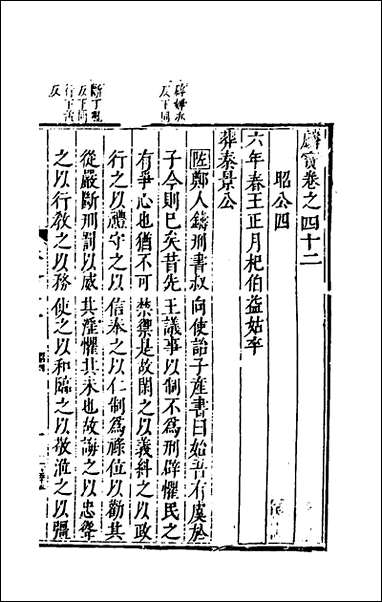 辟婢亦
反下同
斷丁亂
反下同
行下孟
反
麟寶卷之四十二
昭公四
六年春王正月杞伯益姑卒
葬秦景公
左鄭人鑄刑書叔向使詒子產書曰始吾有虞於
子今則已矣昔先王議事以制不爲刑辟懼民之
有爭心也猶不可禁禦是故閑之以義糾之以政
行之以禮守之以信奉之以仁制爲祿位以勸其
從嚴斷刑罰以威其淫懼其未也故誨之以忠聳
之以行教之以務使之以和臨之以敬涖之以彊